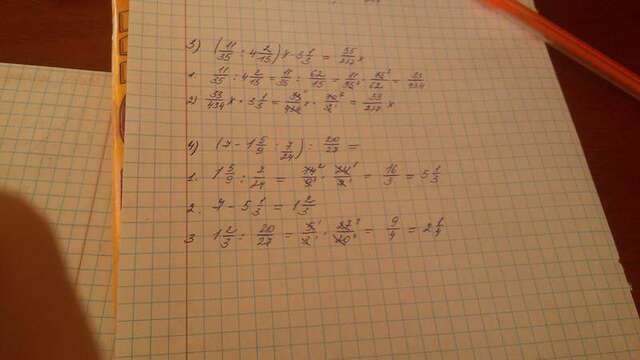 3) (11/35 : 4 2/15) x · 3 1/3 = 55/217 x
1. 11/35 : 4 2/15 = 11/35 : 62/15 = 11/35 · 15/62 = 33/434
2) 33/434 x · 3 1/3 =
4) (7 - 1 5/9 : 7/24) : 20/27 =
1. 1 5/9 : 7/24 = 14/9 · 24/7 = 16/3 = 5 1/3
2. 7 - 5 1/3 = 1 2/3
3 1 2/3 : 20/27 = 9/4 = 2 1/4